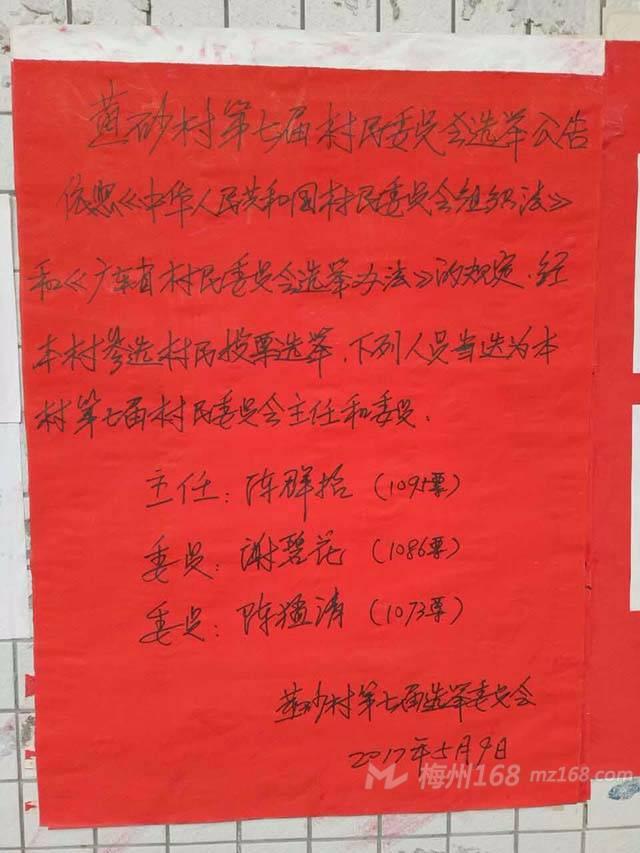 黄砂村第七届村民委员会选举公告
依照《中华人民共和国村民委员会组织法》
和《广东省村民委员会选举办法》的规定，经
本村参选村民投票选举，下列人员当选为本
村第七届村民委员会主任和委员．
主任：陈群招（1095票）
委员：谢碧花（1086票）
委员：陈猛清（1073票）
黄砂村第七届选举委员会
2017年5月9日
梅州168 mz168.com